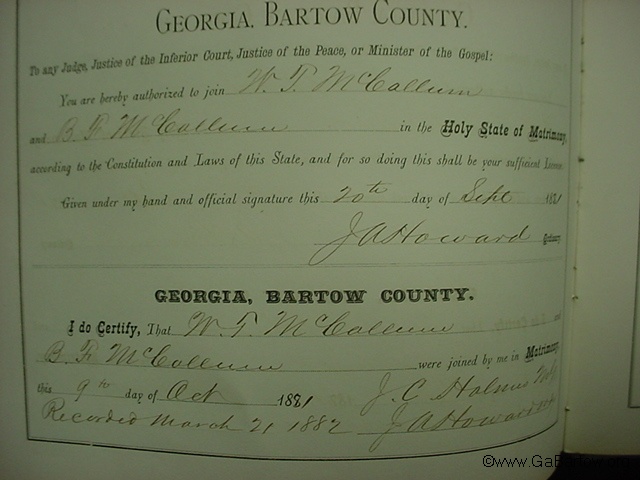 GEORGIA. BARTOW COUNTY.
To any Judge, Justice of the Inferior Court, Justice of the Peace, or Minister of the Gospel:
You are hereby authorized to join W. T. McCallum
and B. F. McCallum in the Holy State of Matrimony,
according to the Constitution and Laws of this State, and for so doing this shall be your sufficient License.
Given under my hand and official signature this 20th day of Sept 1881
J A Howard Ordinary
GEORGIA, BARTOW COUNTY.
I do Certify, That W. T. McCallum and
B. F. McCallum were joined by me in Matrimony,
this 9th day of Oct 1881 J. C.
Recorded March 21 1882 J A Howard
©www.GaB